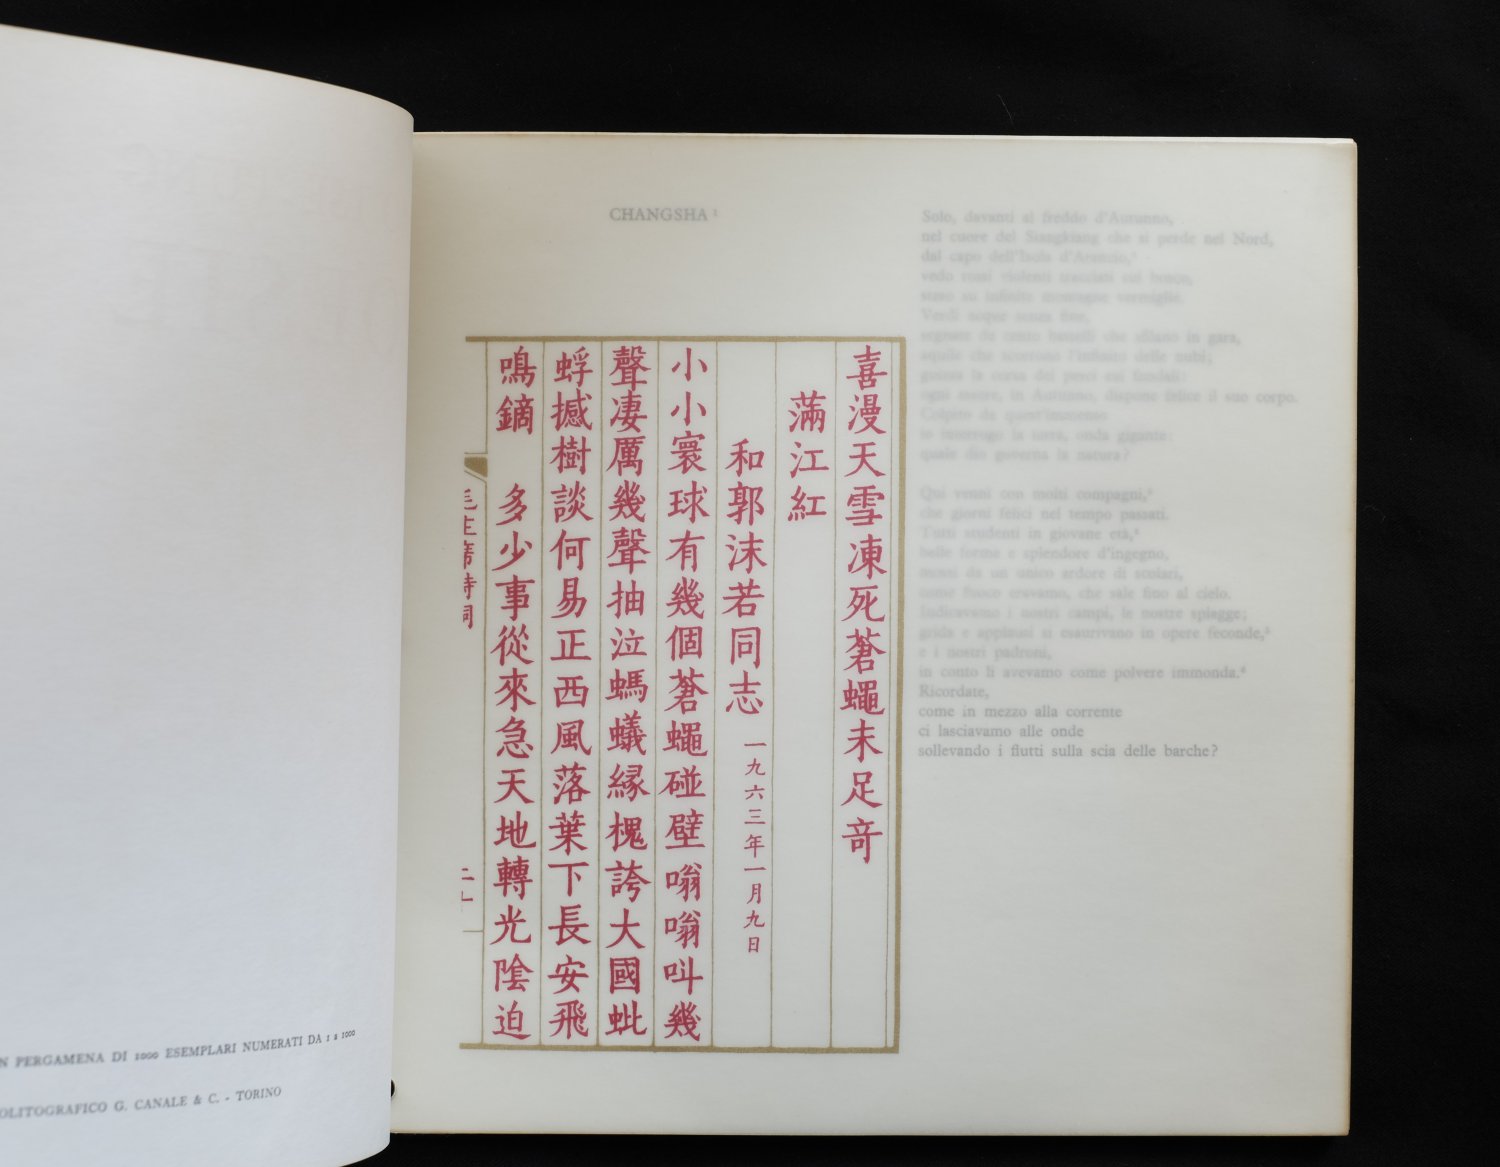 N PERGAMENA DI 1000 ESEMPLARI NUMERATI DA 1 a 1000
OLITOGRAFICO G. CANALE & C. - TORINO
CHANGSHA ¹
喜漫天雪凍死蒼蠅未足竒
滿江紅
和郭沫若同志 一九六三年一月九日
小小寰球有幾個蒼蠅碰壁嗡嗡叫幾
聲凄厲幾聲抽泣螞蟻緣槐誇大國蚍
蜉撼樹談何易正西風落葉下長安飛
鳴鏑 多少事從來急天地轉光陰迫
毛主席詩詞
Solo, davanti al freddo d'Autunno,
nel cuore del Siangkiang che si perde nel Nord,
dal capo dell'Isola d'Arancio,²
vedo rossi violenti tracciati sul bosco,
stavo su infinite montagne vermiglie.
Verdi acque senza fine,
segnate da cento battelli che sfilano in gara,
aquile che scorrono l'infinito delle nubi;
guizza la corsa dei pesci sui fondali:
ogni essere, in Autunno, dispone felice il suo corpo.
Colpito da quest'immenso
io interrogo la terra, onda gigante:
quale dio governa la natura?
Qui venni con molti compagni,³
che giorni felici nel tempo passati.
Tutti studenti in giovane età,⁴
belle forme e splendore d'ingegno,
mossi da un unico ardore di scolari,
come fuoco eravamo, che sale fino al cielo.
Indicavamo i nostri campi, le nostre spiagge;
grida e applausi si esaurivano in opere feconde,⁵
e i nostri padroni,
in conto li avevamo come polvere immonda.⁶
Ricordate,
come in mezzo alla corrente
ci lasciavamo alle onde
sollevando i flutti sulla scia delle barche?